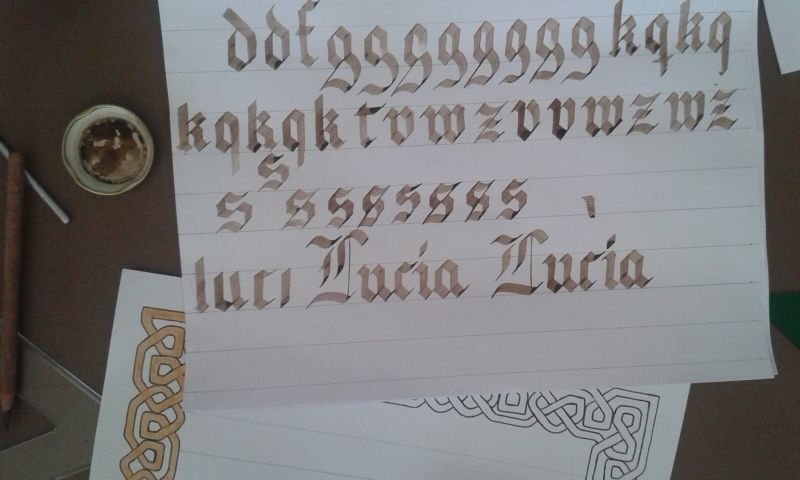 ddfggggggggkqkq
kqkqktvwzvvwzwz
s
s sssssss ı
lucı Lucia Lucia